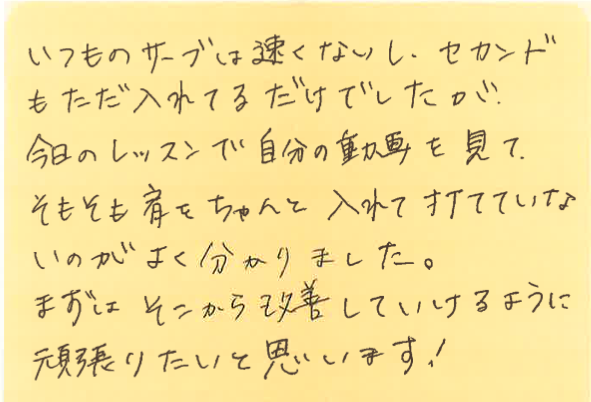 いつものサーブは速くないし、セカンド
もただ入れてるだけでしたが、
今日のレッスンで自分の動画を見て、
そもそも肩をちゃんと入れて打てていな
いのがよく分かりました。
まずはそこから改善していけるように
頑張りたいと思います!